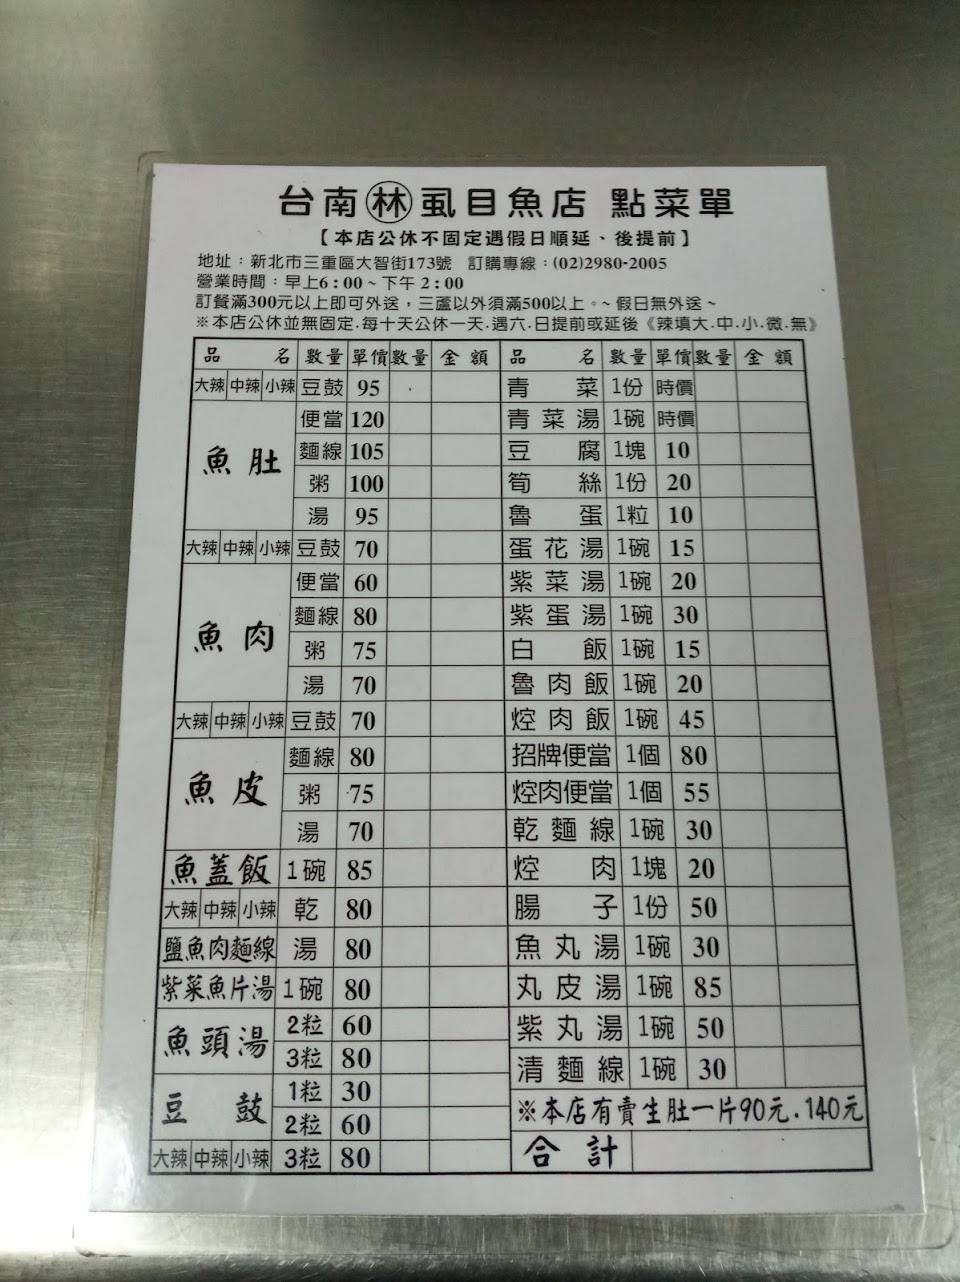 台南林虱目魚店 點菜單
【本店公休不固定遇假日順延、後提前】
地址：新北市三重區大智街173號 訂購專線：(02)2980-2005
營業時間：早上6：00～下午2：00
訂餐滿300元以上即可外送，三蘆以外須滿500以上。~假日無外送~
※本店公休並無固定.每十天公休一天.週六.日提前或延後《辣填大.中.小.微.無》
品名 數量 單價 數量 金額 品名 數量 單價 數量 金額
大辣 中辣 小辣 豆鼓 95 青菜 1份 時價
魚肚 便當 120 青菜湯 1碗 時價
麵線 105 豆腐 1塊 10
粥 100 筍絲 1份 20
湯 95 魯蛋 1粒 10
大辣 中辣 小辣 豆鼓 70 蛋花湯 1碗 15
魚肉 便當 60 紫菜湯 1碗 20
麵線 80 紫蛋湯 1碗 30
粥 75 白飯 1碗 15
湯 70 魯肉飯 1碗 20
大辣 中辣 小辣 豆鼓 70 焢肉飯 1碗 45
魚皮 麵線 80 招牌便當 1個 80
粥 75 焢肉便當 1個 55
湯 70 乾麵線 1碗 30
魚蓋飯 1碗 85 焢肉 1塊 20
大辣 中辣 小辣 乾 80 腸子 1份 50
鹽魚肉麵線 湯 80 魚丸湯 1碗 30
紫菜魚片湯 1碗 80 丸皮湯 1碗 85
魚頭湯 2粒 60 紫丸湯 1碗 50
3粒 80 清麵線 1碗 30
豆鼓 1粒 30 ※本店有賣生肚一片90元.140元
2粒 60 合計
大辣 中辣 小辣 3粒 80